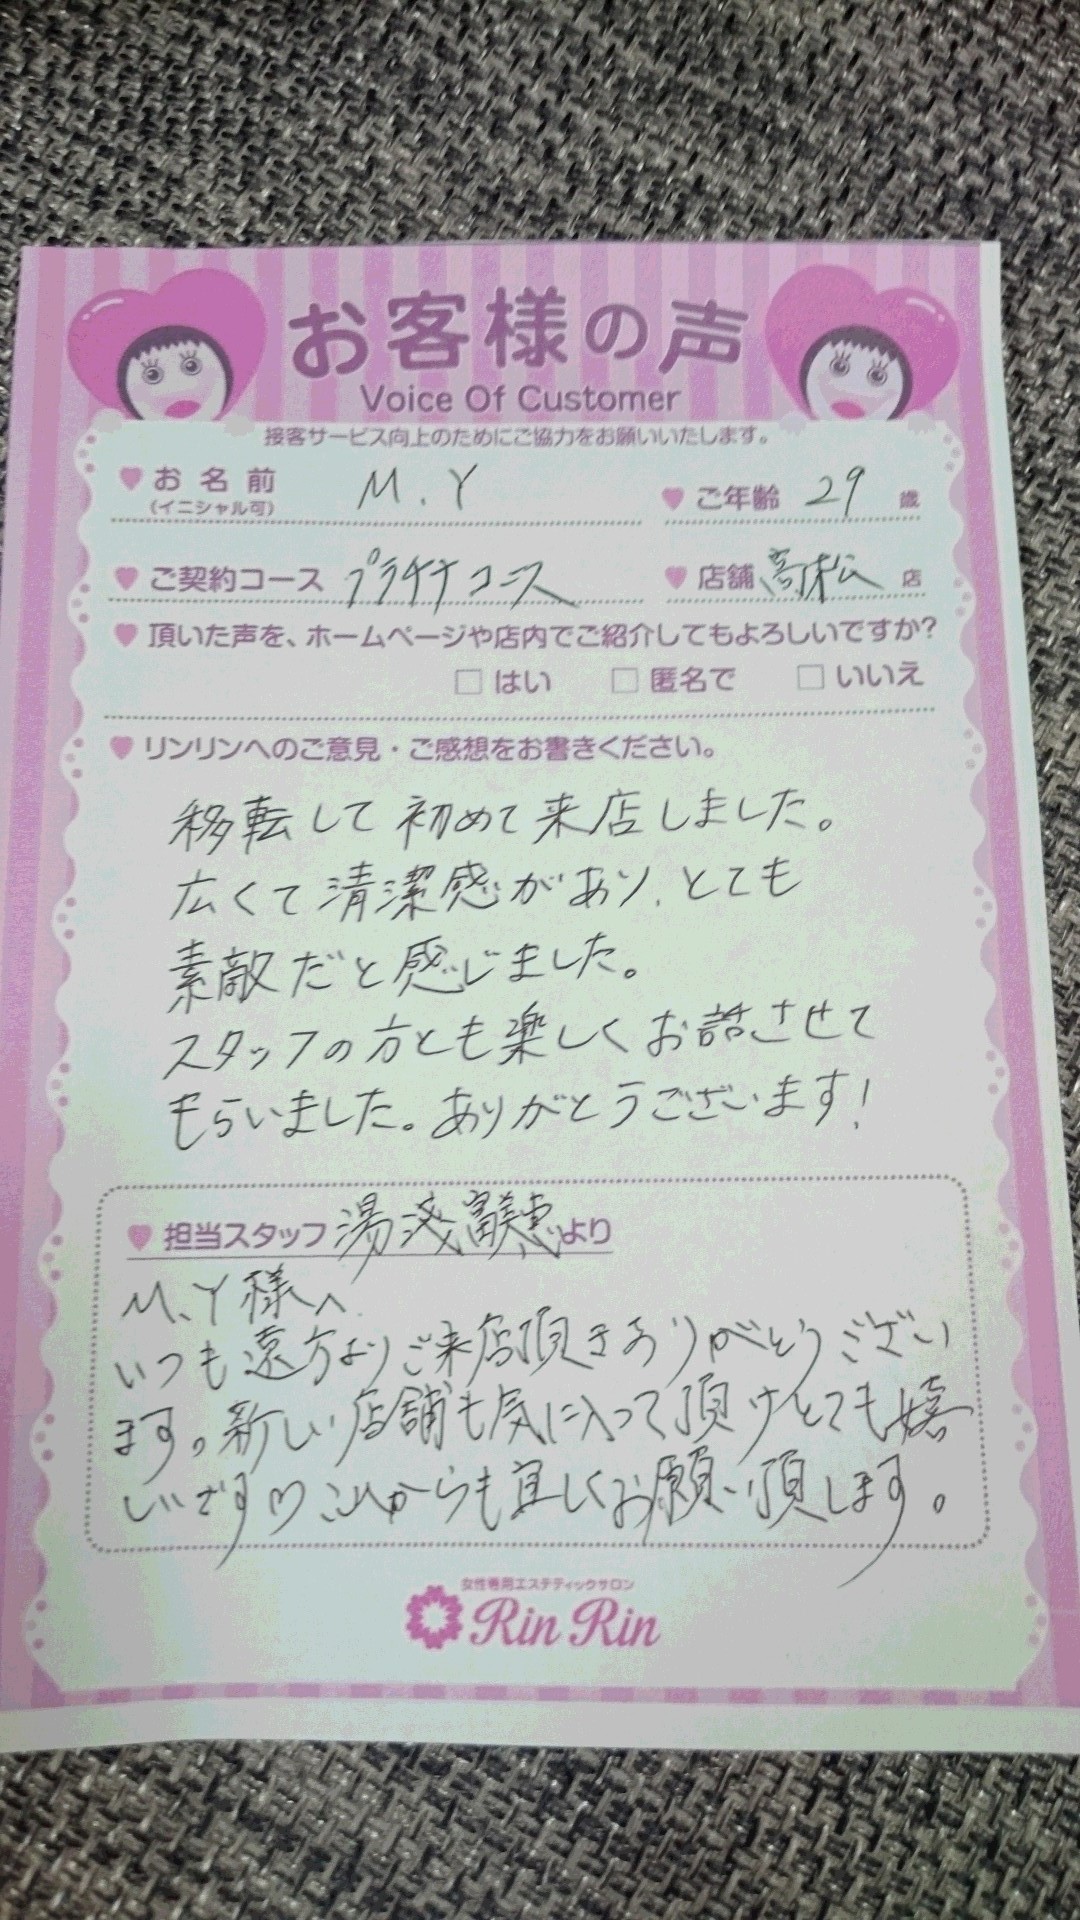 お客様の声
Voice Of Customer
接客サービス向上のためにご協力をお願いいたします。
お名前 M.Y ご年齢 29 歳
(イニシャル可)
ご契約コース プラチナコース 店舗 高松 店
頂いた声を、ホームページや店内でご紹介してもよろしいですか?
□ はい □ 匿名で □ いいえ
リンリンへのご意見・ご感想をお書きください。
移転して初めて来店しました。
広くて清潔感があり、とても
素敵だと感じました。
スタッフの方とも楽しくお話させて
もらいました。ありがとうございます!
担当スタッフ 湯浅富美恵より
M.Y様へ
いつも遠方よりご来店頂きありがとうござい
ます。新しい店舗も気に入って頂けとても嬉
しいです♡これからも宜しくお願い頂します。
女性専用エステティックサロン
Rin Rin